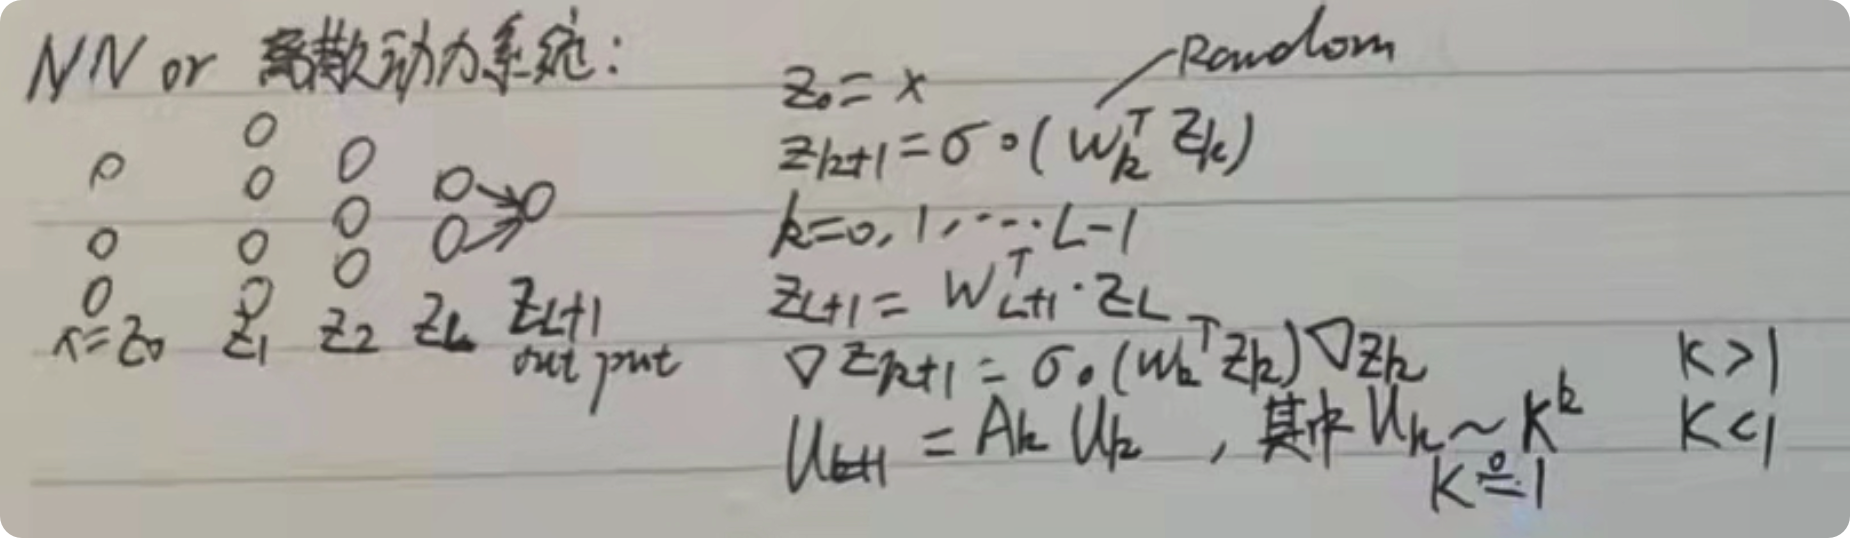 NN or 离散动力系统:
x=z₀ z₁ z₂ z_L z_{L+1}
output
Random
z₀ = x
z_{k+1} = σ∘(W_k^T z_k)
k=0,1,....L-1
z_{L+1} = W_{L+1}^T · z_L
∇z_{k+1} = σ∘(W_k^T z_k)∇z_k K>1
U_{k+1} = A_k U_k , 其中 U_k ~ K^k K<1
K≗1